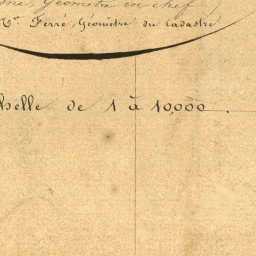 Géomètre en chef,
Mr. Ferré, Géomètre du Cadastre
helle de 1 à 10,000.